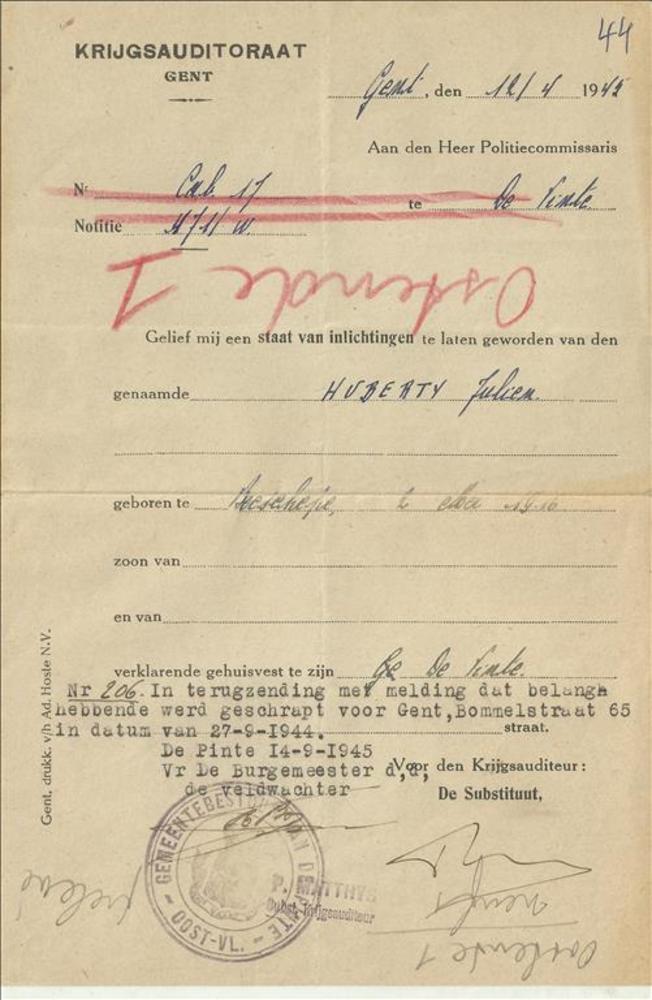 44
KRIJGSAUDITORAAT
GENT
Gent, den 12/4 1945
Aan den Heer Politiecommissaris
Nr Cab. 17
te De Pinte.
Notitie
Ostende I
Gelief mij een staat van inlichtingen te laten geworden van den
genaamde HUBERTY Julien.
geboren te
zoon van
en van
verklarende gehuisvest te zijn De Pinte.
Nr 206. In terugzending met melding dat belangh
hebbende werd geschrapt voor Gent, Bommelstraat 65
in datum van 27-9-1944. straat.
De Pinte 14-9-1945
Vr De Burgemeester d,d, Voor den Krijgsauditeur :
de veldwachter De Substituut,
GEMEENTEBESTUUR VAN DE PINTE
OOST-VL.
P. MATTHYS
Subst. Krijgsauditeur
Oostende 1
Gent, drukk. v/h Ad. Hoste N.V.